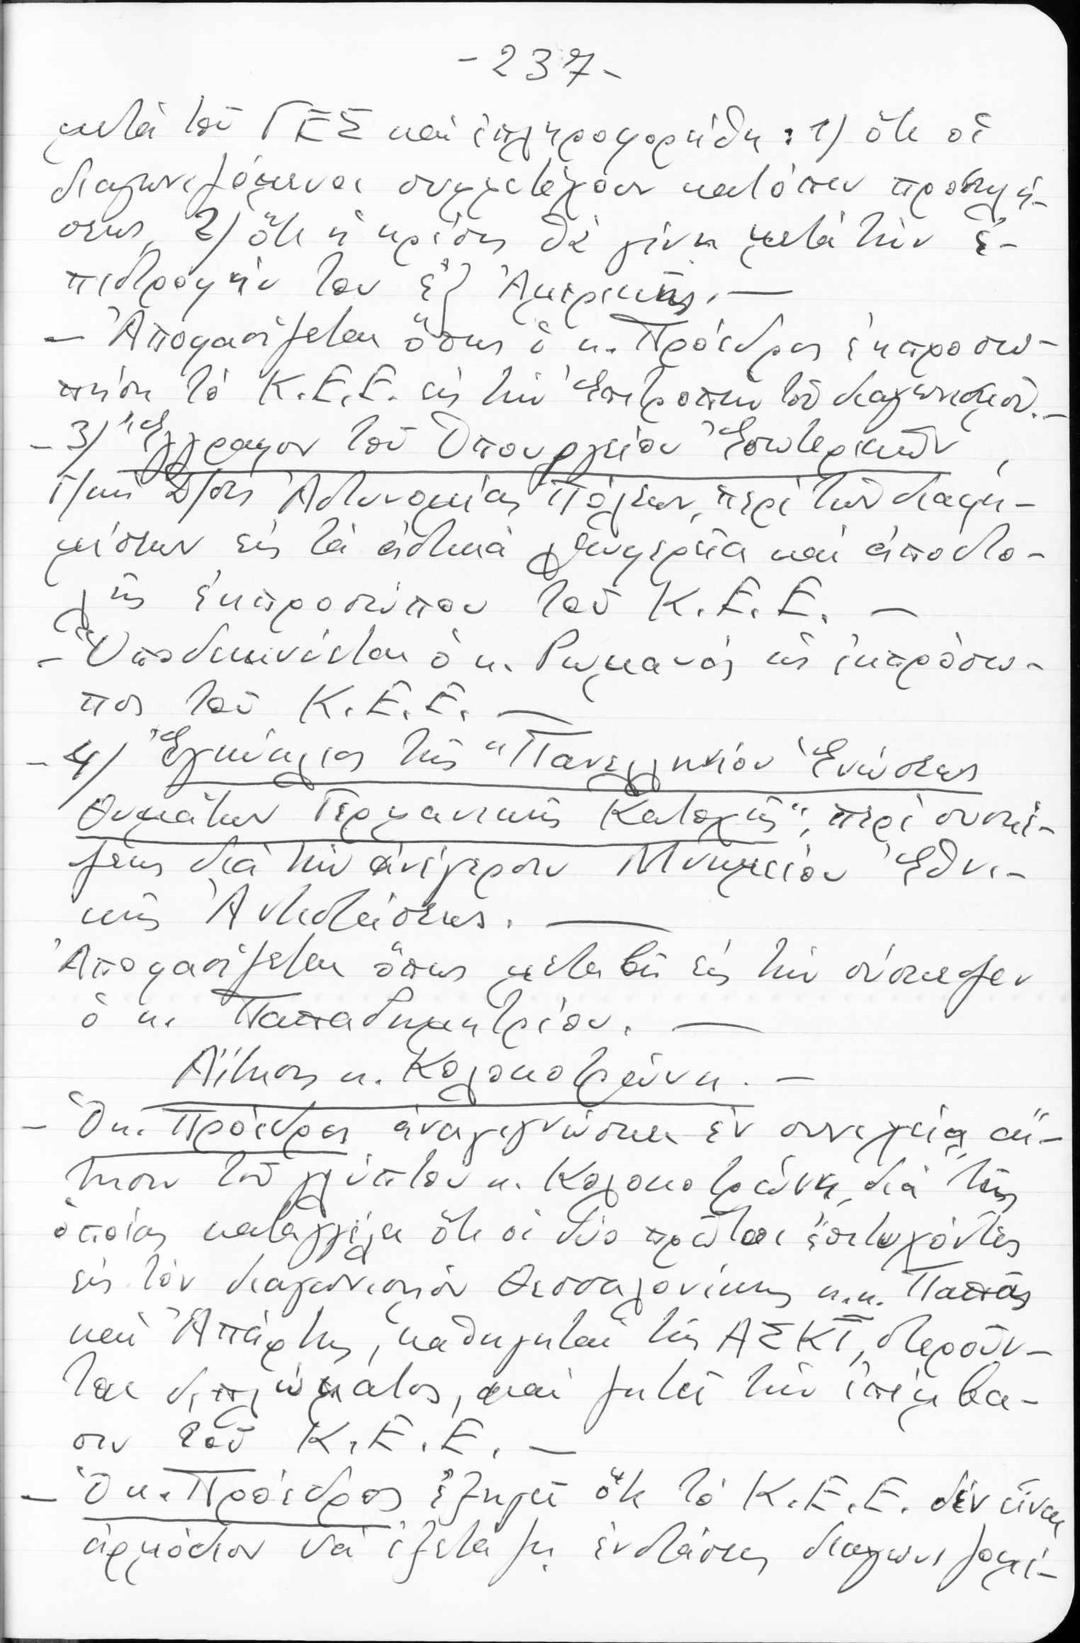 -237-
μετὰ τοῦ ΓΕΣ καὶ ἐπληροφορήθη: 1) ὅτι οἱ
διαγωνιζόμενοι συμμετέχουν κατόπιν προσκλή-
σεως, 2) ὅτι ἡ κρίσις θὰ γίνη μετὰ τὴν ἐ-
πιστροφήν του ἐξ Ἀμερικῆς. —
- Ἀποφασίζεται ὅπως ὁ κ. Πρόεδρος ἐκπροσω-
πήση τὸ Κ.Ε.Ε. εἰς τὴν Ἐπιτροπὴν τοῦ διαγωνισμοῦ. -
- 3) Ἔγγραφον τοῦ Ὑπουργείου Ἐσωτερικῶν,
Γ/κὴ Δ/σις Ἀστυνομίας Πόλεων, περὶ τῶν διαφη-
μίσεων εἰς τὰ ἀστικὰ λεωφορεῖα καὶ ἀποστο-
λῆς ἐκπροσώπου τοῦ Κ.Ε.Ε. —
- Ὑποδεικνύεται ὁ κ. Ρωμανός ὡς ἐκπρόσω-
πος τοῦ Κ.Ε.Ε. —
- 4) Ἐγκύκλιος τῆς "Πανελληνίου Ἑνώσεως
Θυμάτων Γερμανικῆς Κατοχῆς", περὶ συσκέ-
ψεως διὰ τὴν ἀνέγερσιν Μνημείου Ἐθνι-
κῆς Ἀντιστάσεως. —
Ἀποφασίζεται ὅπως μεταβῆ εἰς τὴν σύσκεψιν
ὁ κ. Παπαδημητρίου. —
Αἴτησις κ. Κολοκοτρώνη. -
- Ὁ κ. Πρόεδρος ἀναγιγνώσκει ἐν συνεχείᾳ αἴ-
τησιν τοῦ γλύπτου κ. Κολοκοτρώνη, διὰ τῆς
ὁποίας καταγγέλει ὅτι οἱ δύο πρῶτοι ἐπιτυχόντες
εἰς τὸν διαγωνισμὸν Θεσσαλονίκης κ.κ. Παππᾶς
καὶ Ἀπάρτης, καθηγηταὶ τῆς ΑΣΚΤ, στεροῦν-
ται διπλώματος, καὶ ζητεῖ τὴν ἐπέμβα-
σιν τοῦ Κ.Ε.Ε. —
- Ὁ κ. Πρόεδρος ἐξηγεῖ ὅτι τὸ Κ.Ε.Ε. δὲν εἶναι
ἁρμόδιον νὰ ἐξετάζη ἐνστάσεις διαγωνιζομέ-